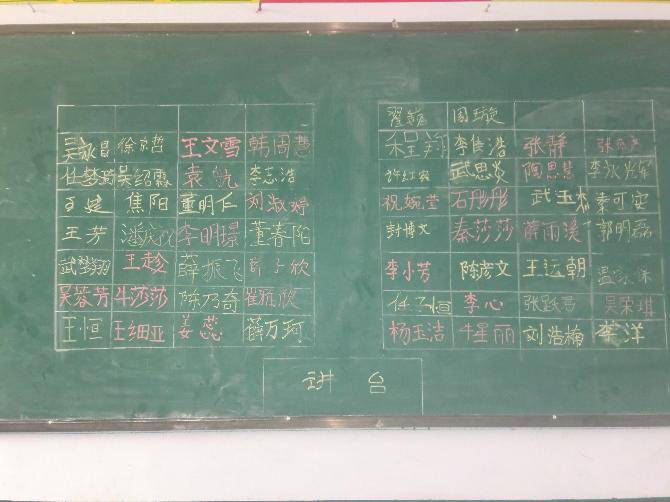 翟 国璇
吴咏昌 徐京哲 王文雪 韩周慧 程翔 李佳浩 张静
任梦 吴绍霖 袁航 李志浩 许红 武思 陶思慧 李
王建 焦阳 董明仁 刘淑婷 祝婉莹 石彤彤 武玉 秦可实
王芳 潘庆 李明璟 董春阳 封博文 秦莎莎 薛雨溪 郭明磊
武 翔 王趁 薛振飞 子欣 李小芳 陈彦文 王远朝 温
吴蓉芳 牛莎莎 陈乃奇 崔航欣 任子恒 李心 张跃 吴荣琪
王恒 王细亚 姜蕊 薛万珂 杨玉洁 牛星丽 刘浩楠 李洋
讲台